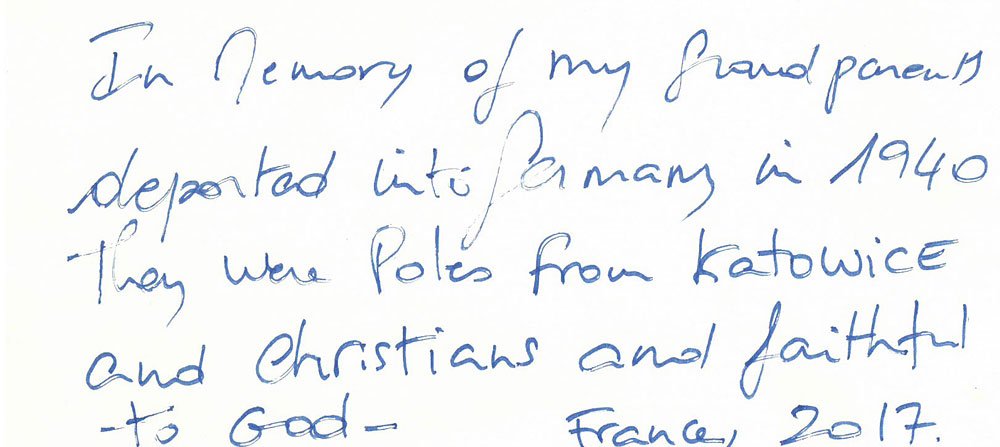 In Memory of my Grandparents
deported into Germany in 1940
They were Poles from KATOWICE
and Christians and faithful
-to God- France, 2017.